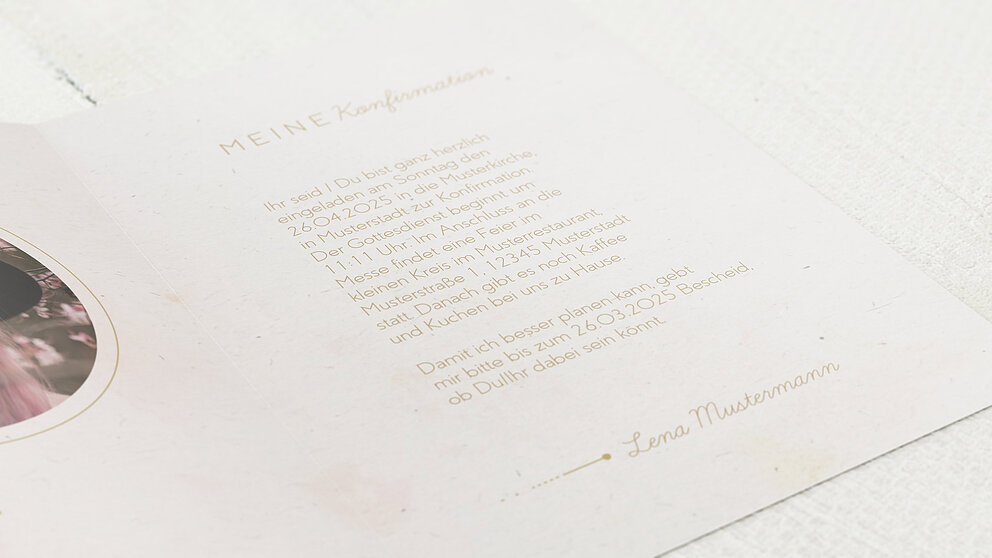 MEINE Konfirmation
Ihr seid / Du bist ganz herzlich
eingeladen am Sonntag den
26.04.2025 in die Musterkirche,
in Musterstadt zur Konfirmation
Der Gottesdienst beginnt um
11:11 Uhr. Im Anschluss an die
Messe findet eine Feier im
kleinen Kreis im Musterrestaurant,
Musterstraße 1, 12345 Musterstadt
statt. Danach gibt es noch Kaffee
und Kuchen bei uns zu Hause.
Damit ich besser planen kann, gebt
mir bitte bis zum 26.03.2025 Bescheid,
ob DuIIhr dabei sein könnt.
Lena Mustermann